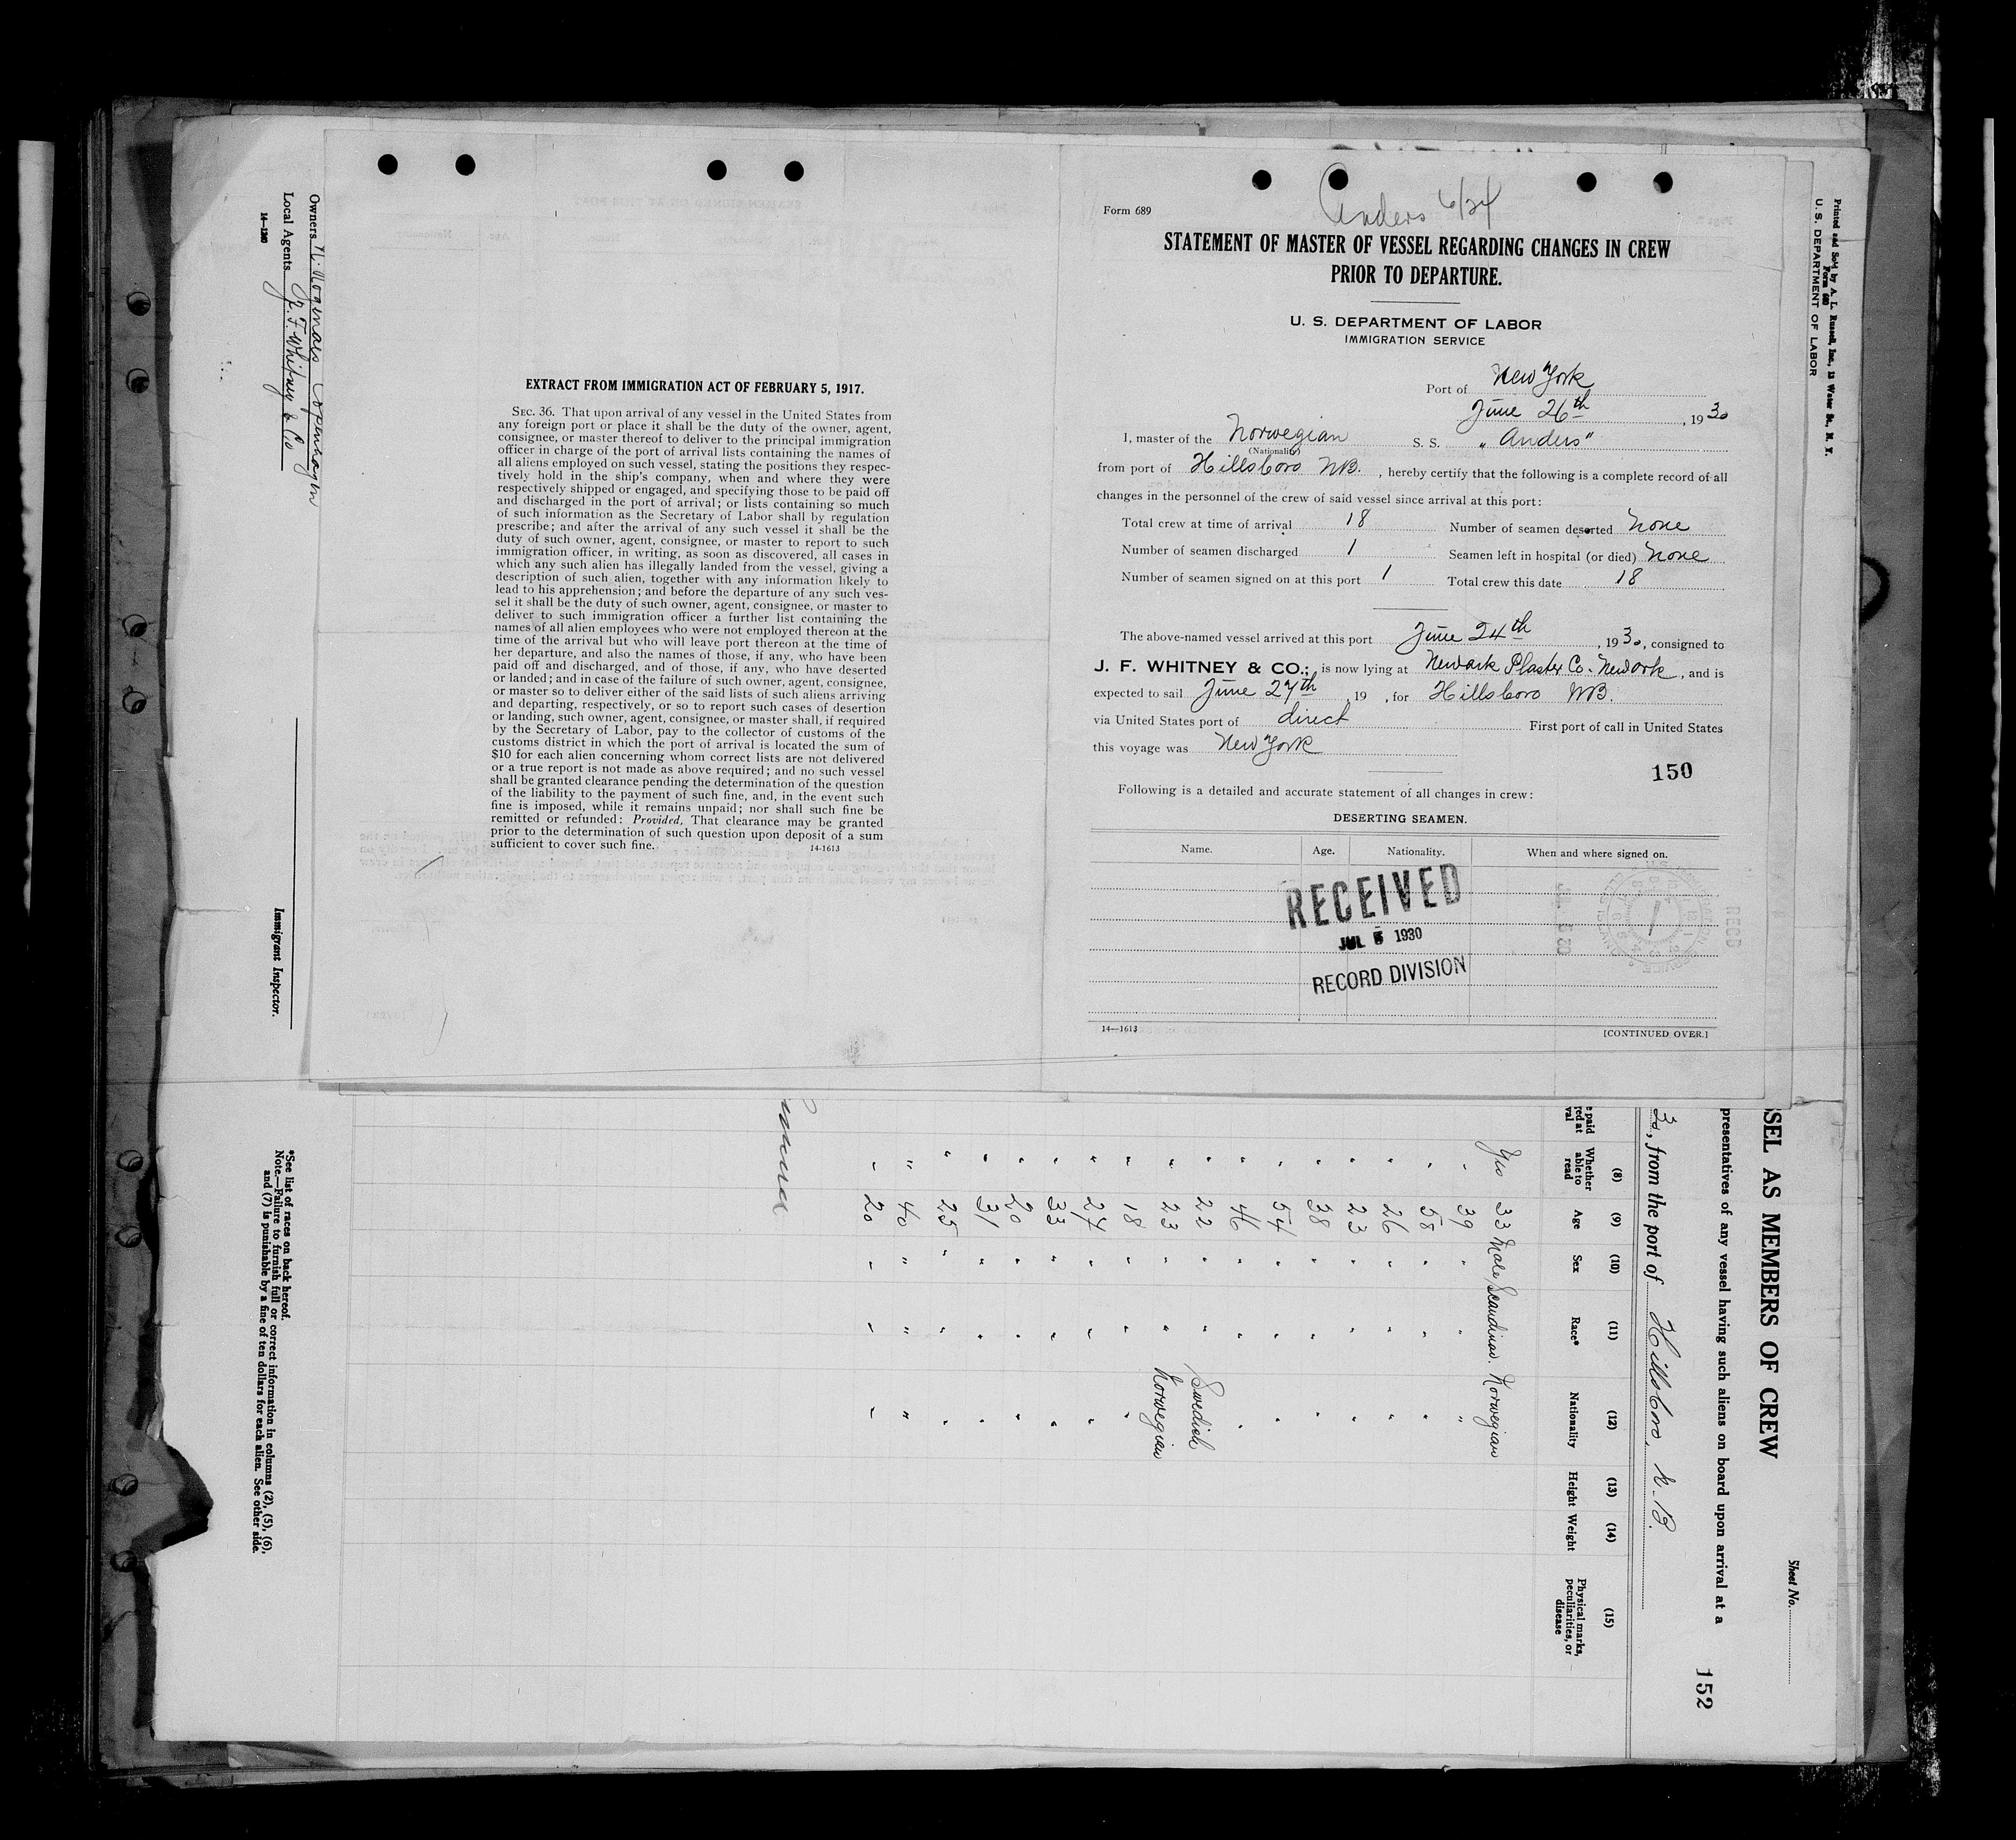 Anders 6/24
Form 689
STATEMENT OF MASTER OF VESSEL REGARDING CHANGES IN CREW
PRIOR TO DEPARTURE.
U. S. DEPARTMENT OF LABOR
IMMIGRATION SERVICE
Port of New York
June 26th, 1930
I, master of the Norwegian S. S. "Anders"
(Nationality)
from port of Hillsboro NB., hereby certify that the following is a complete record of all
changes in the personnel of the crew of said vessel since arrival at this port:
Total crew at time of arrival 18 Number of seamen deserted None
Number of seamen discharged 1 Seamen left in hospital (or died) None
Number of seamen signed on at this port 1 Total crew this date 18
The above-named vessel arrived at this port June 24th, 1930, consigned to
J. F. WHITNEY & CO.; is now lying at Newark Plaster Co. Newark, and is
expected to sail June 27th, 19 , for Hillsboro NB.
via United States port of direct First port of call in United States
this voyage was New York
150
Following is a detailed and accurate statement of all changes in crew:
DESERTING SEAMEN.
Name. Age. Nationality. When and where signed on.
RECEIVED
JUL 5 1930
RECORD DIVISION
14—1613 [CONTINUED OVER.]
EXTRACT FROM IMMIGRATION ACT OF FEBRUARY 5, 1917.
SEC. 36. That upon arrival of any vessel in the United States from
any foreign port or place it shall be the duty of the owner, agent,
consignee, or master thereof to deliver to the principal immigration
officer in charge of the port of arrival lists containing the names of
all aliens employed on such vessel, stating the positions they respec-
tively hold in the ship's company, when and where they were
respectively shipped or engaged, and specifying those to be paid off
and discharged in the port of arrival; or lists containing so much
of such information as the Secretary of Labor shall by regulation
prescribe; and after the arrival of any such vessel it shall be the
duty of such owner, agent, consignee, or master to report to such
immigration officer, in writing, as soon as discovered, all cases in
which any such alien has illegally landed from the vessel, giving a
description of such alien, together with any information likely to
lead to his apprehension; and before the departure of any such ves-
sel it shall be the duty of such owner, agent, consignee, or master to
deliver to such immigration officer a further list containing the
names of all alien employees who were not employed thereon at the
time of the arrival but who will leave port thereon at the time of
her departure, and also the names of those, if any, who have been
paid off and discharged, and of those, if any, who have deserted
or landed; and in case of the failure of such owner, agent, consignee,
or master so to deliver either of the said lists of such aliens arriving
and departing, respectively, or so to report such cases of desertion
or landing, such owner, agent, consignee, or master shall, if required
by the Secretary of Labor, pay to the collector of customs of the
customs district in which the port of arrival is located the sum of
$10 for each alien concerning whom correct lists are not delivered
or a true report is not made as above required; and no such vessel
shall be granted clearance pending the determination of the question
of the liability to the payment of such fine, and, in the event such
fine is imposed, while it remains unpaid; nor shall such fine be
remitted or refunded: Provided, That clearance may be granted
prior to the determination of such question upon deposit of a sum
sufficient to cover such fine.
14-1613
Printed and Sold by A. L. Russell, Inc., 13 Water St., N. Y.
Form 680
U. S. DEPARTMENT OF LABOR
Sheet No.
SSEL AS MEMBERS OF CREW
152
presentatives of any vessel having such aliens on board upon arrival at a
30, from the port of Hillsboro, N. B.
(8) (9) (10) (11) (12) (13) (14) (15)
Whether able to read Age Sex Race* Nationality Height Weight Physical marks, peculiarities, or disease
Yes 33 Male Scandinav. Norwegian
" 39 " " "
" 58 " " "
" 26 " " "
" 23 " " "
" 38 " " "
" 54 " " "
" 46 " " "
" 22 " " Swedish
" 23 " " Norwegian
" 18 " " "
" 24 " " "
" 33 " " "
" 20 " " "
" 31 " " "
" 25 " " "
" 40 " " "
" 20 " " "
Owners Copenhagen
Local Agents J. F. Whitney & Co
14—1240
Immigrant Inspector.
*See list of races on back hereof.
Note.—Failure to furnish full or correct information in columns (2), (5), (6),
and (7) is punishable by a fine of ten dollars for each alien. See other side.